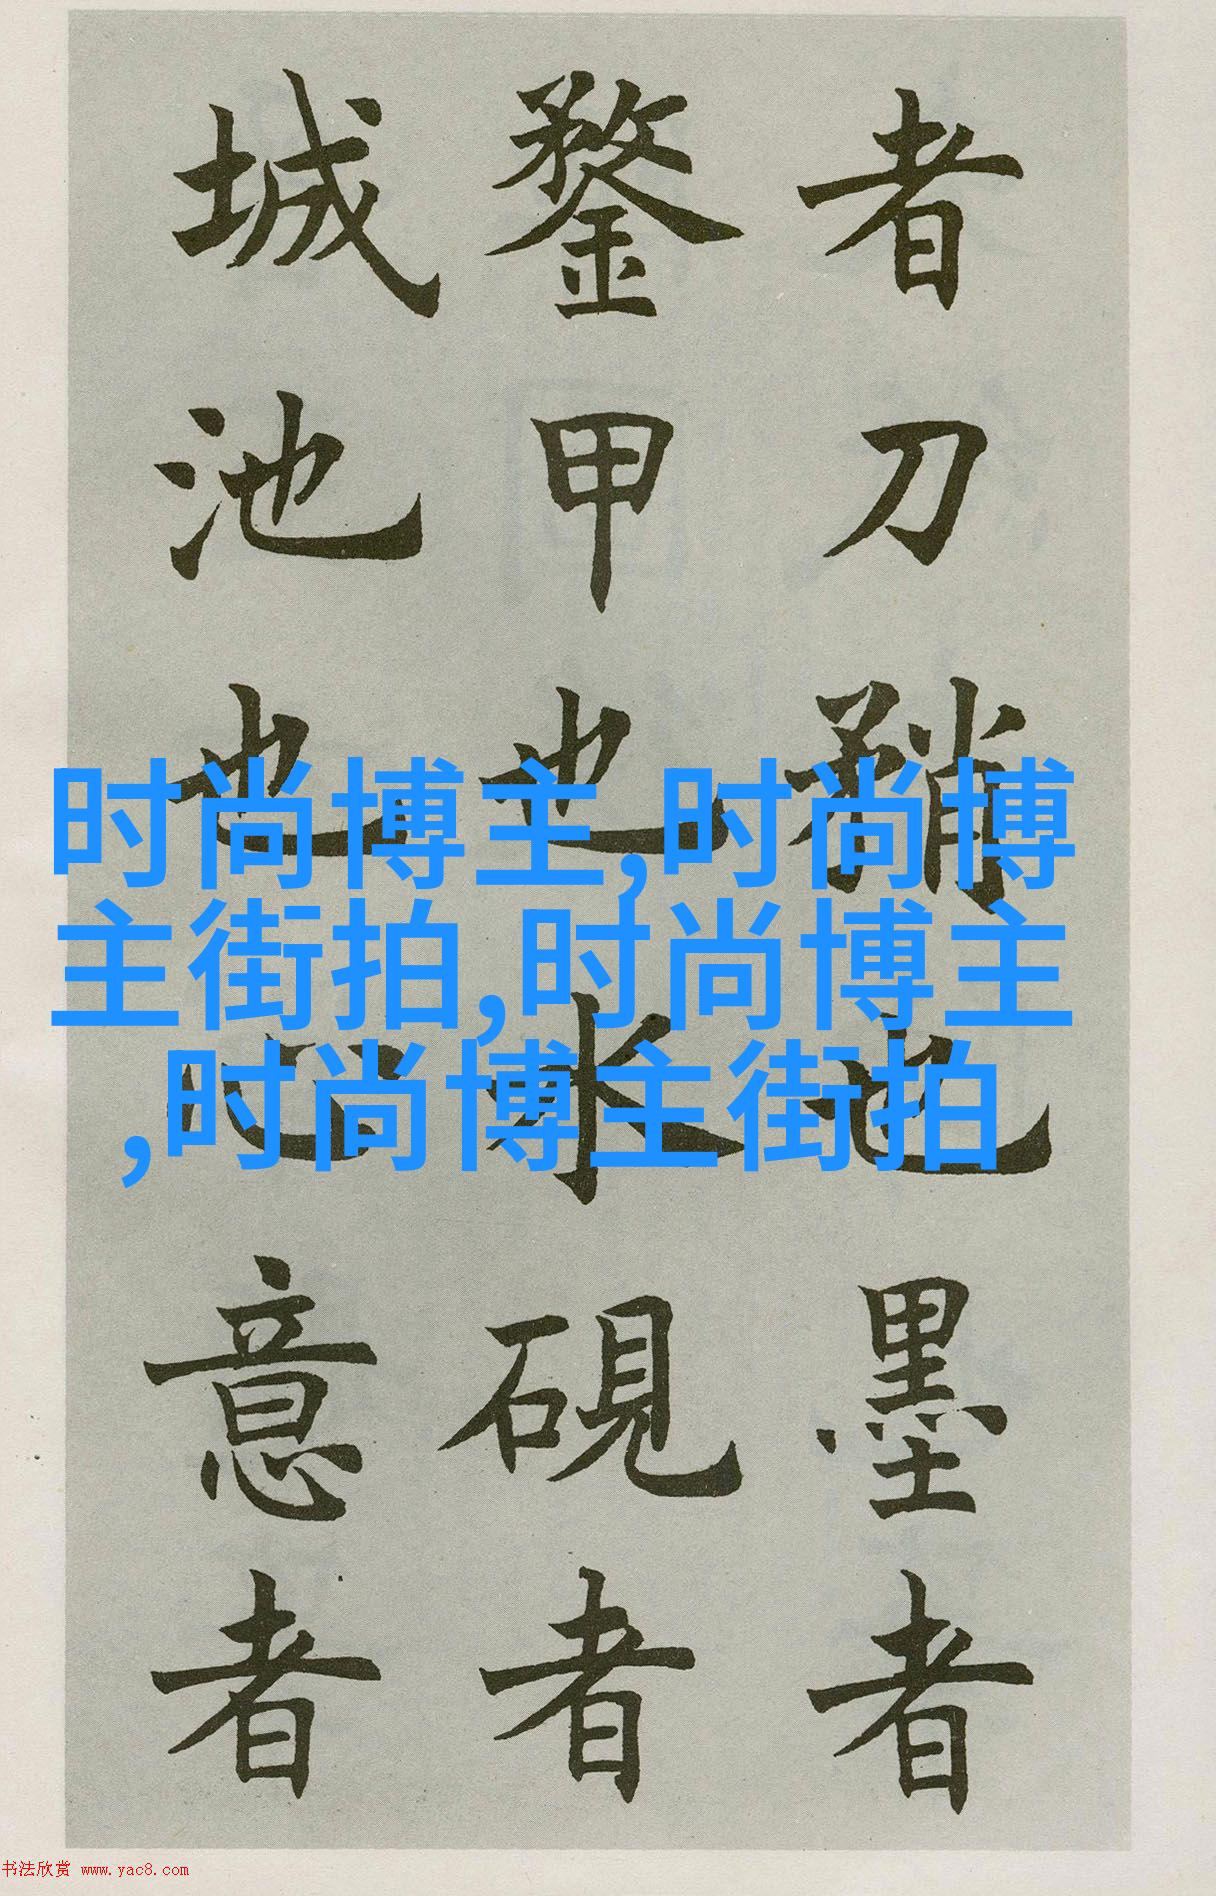 者刀矟也墨者
鍪甲也水硯者
城池也心意者
时尚博主,时尚博
主街拍,时尚博主
,时尚博主街拍
书法欣赏 www.yac8.com